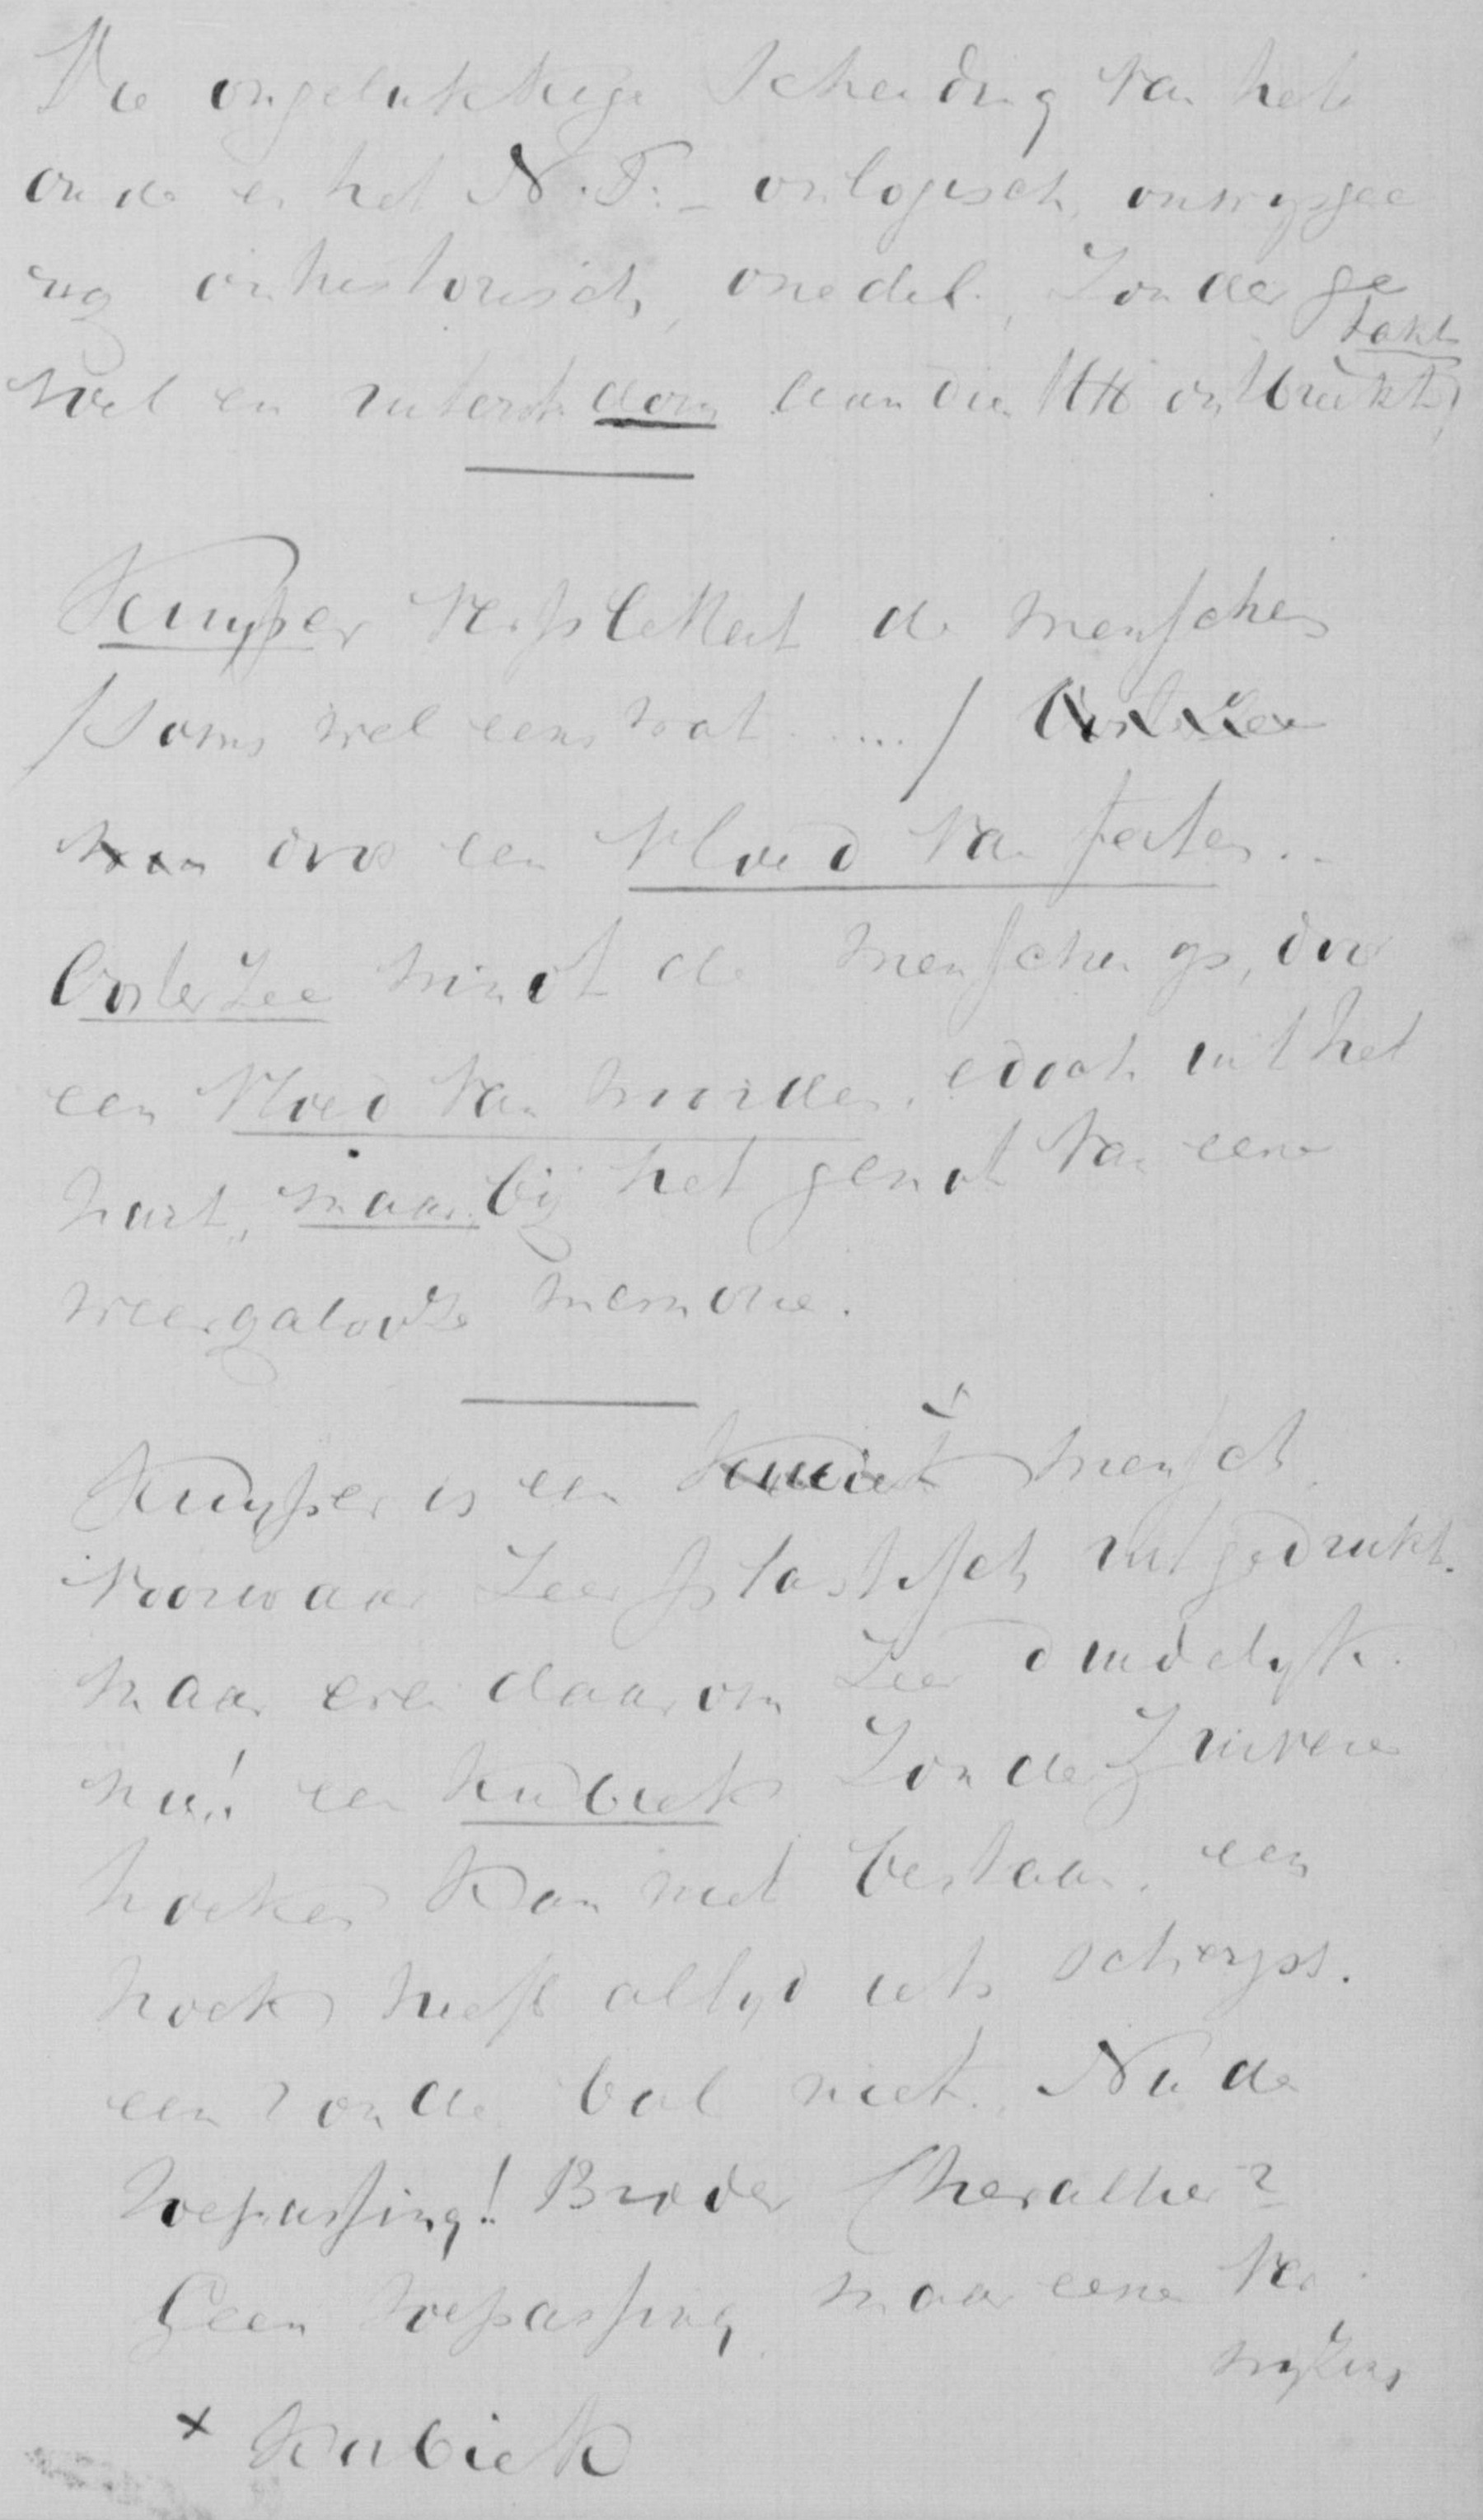 Die ongelukkige scheiding van het
oude en het N.T. – onlogisch, onwijsgee
rig onhistorisch, onedel, zonder ge
voel en uiterst dom (aan die HH ontbreekt)
takt
Kuyper verplettert de menschen
/soms wel eens wat ...../ Oosterzee
door een vloed van feiten..
Oosterzee windt de menschen op, door
een vloed van woorden, edoch uit het
hart, maar bij het genot van eene
weergalooze memorie.
Kuyper is een kubiek mensch
voorwaar zeer plastisch uitgedrukt.
maar even daarom zeer duidelyk.
nu! een kubiek zonder zuivere
hoeken kan niet bestaan, een
hoek heeft altyd iets scherps.
een ronde bal niet. Nu de
toepassing! Broder Chevallier?
Geen toepassing maar eene ver
wyzing
× Kubiek